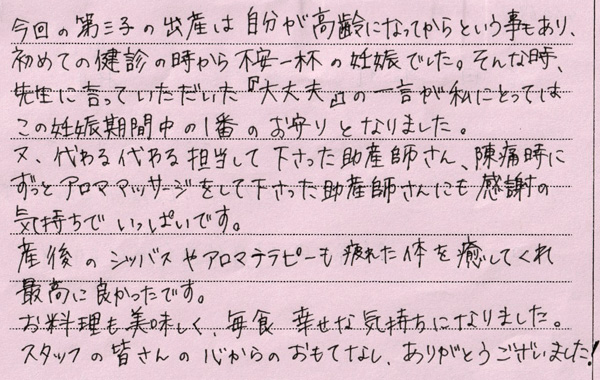 今回の第三子の出産は自分が高齢になってからという事もあり、
初めての健診の時から不安一杯の妊娠でした。そんな時、
先生に言っていただいた『大丈夫』の一言が私にとっては
この妊娠期間中の1番のお守りとなりました。
又、代わる代わる担当して下さった助産師さん、陣痛時に
ずっとアロママッサージをして下さった助産師さんにも感謝の
気持ちでいっぱいです。
産後のジッバスやアロマテラピーも疲れた体を癒してくれ
最高に良かったです。
お料理も美味しく、毎食幸せな気持ちになりました。
スタッフの皆さんの心からのおもてなし、ありがとうございました!